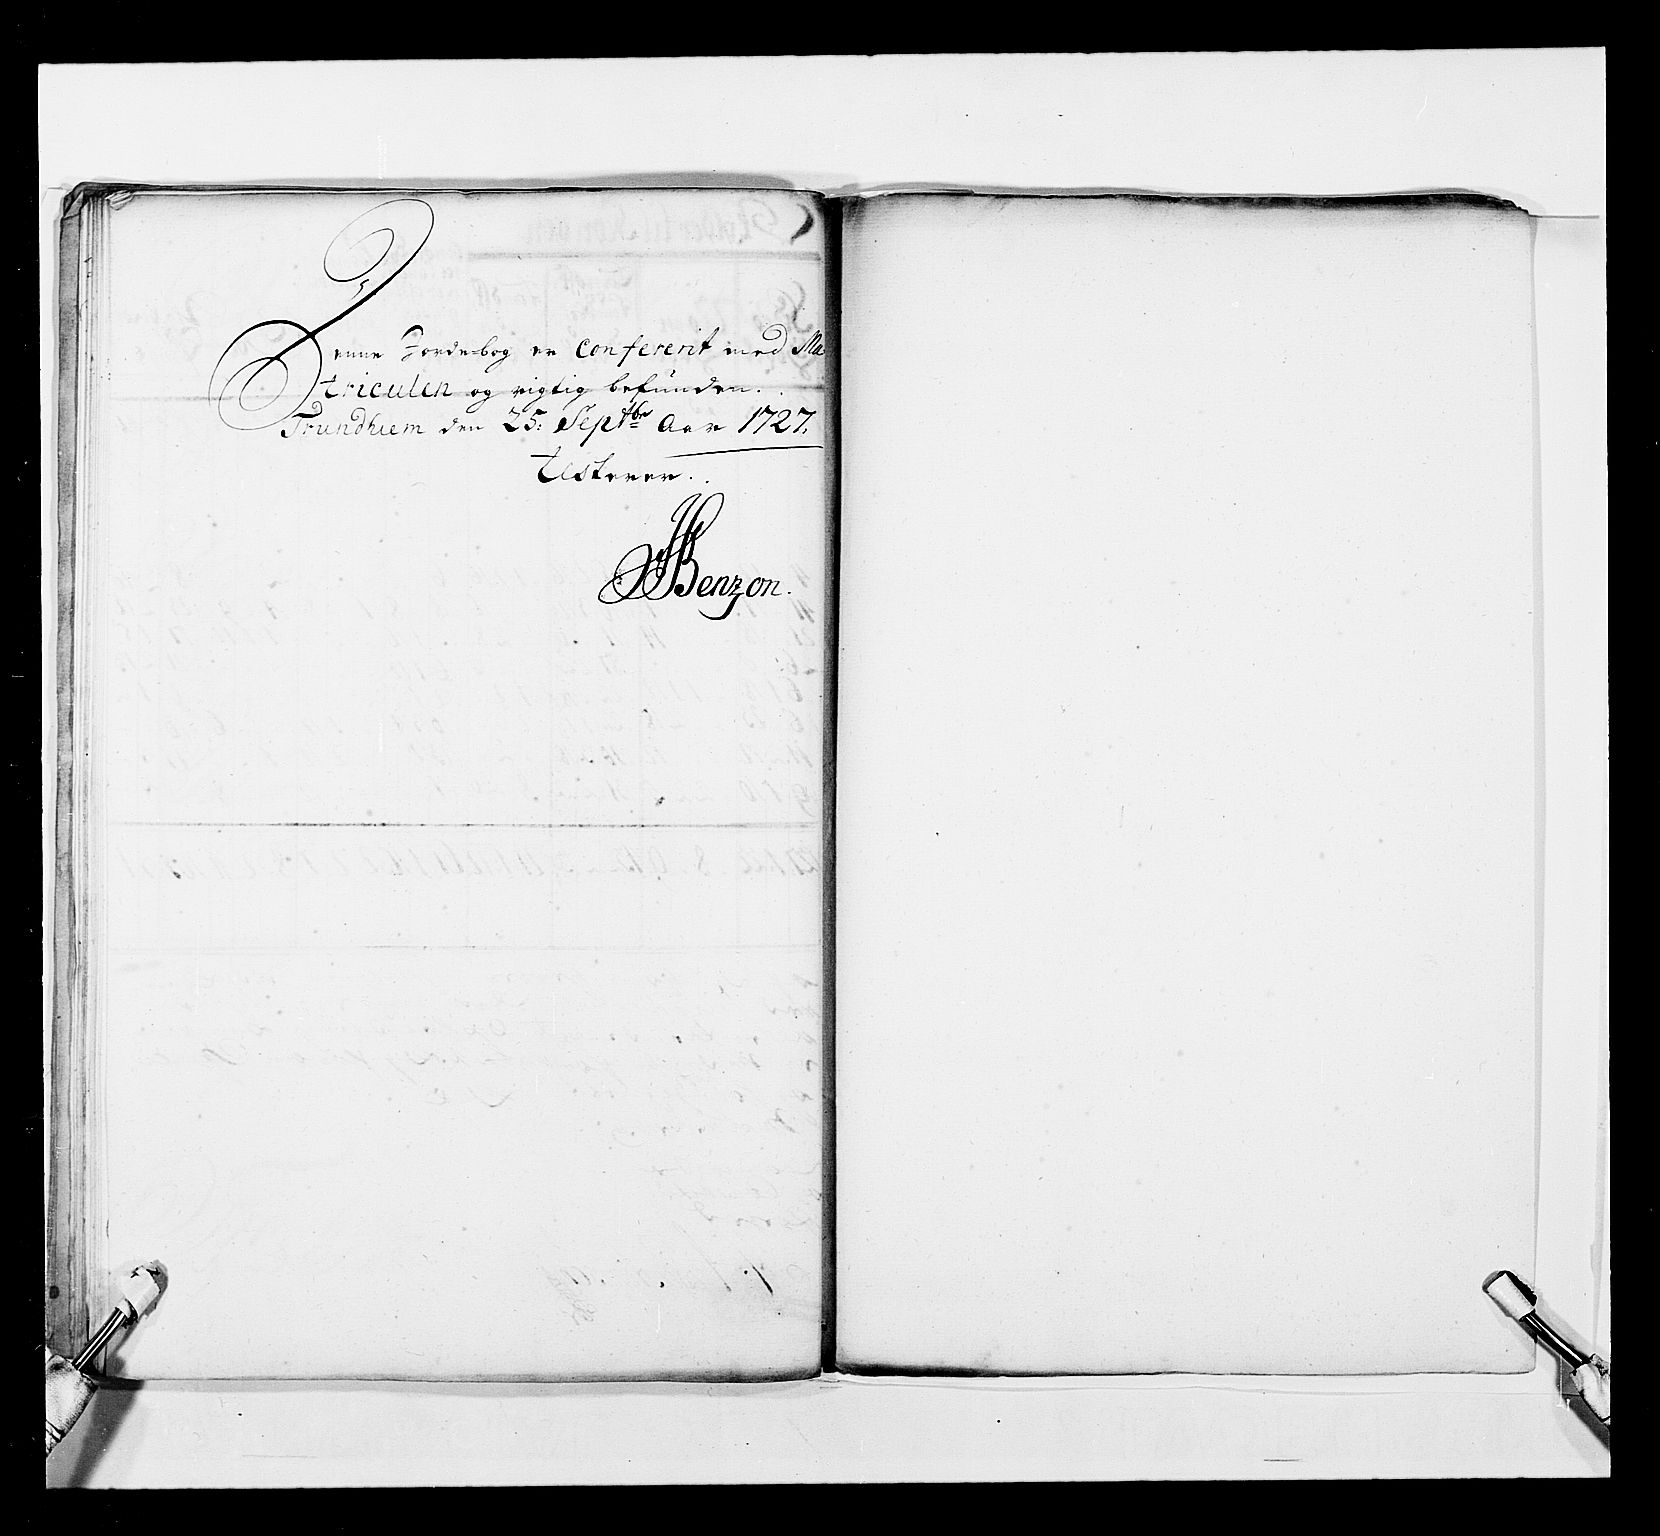 Denne Jordebog er confererit med Ma
triculen og rigtig befunden.
Trundhiem den 25: Septbr Aar 1727.
Testerer.
Benzon.